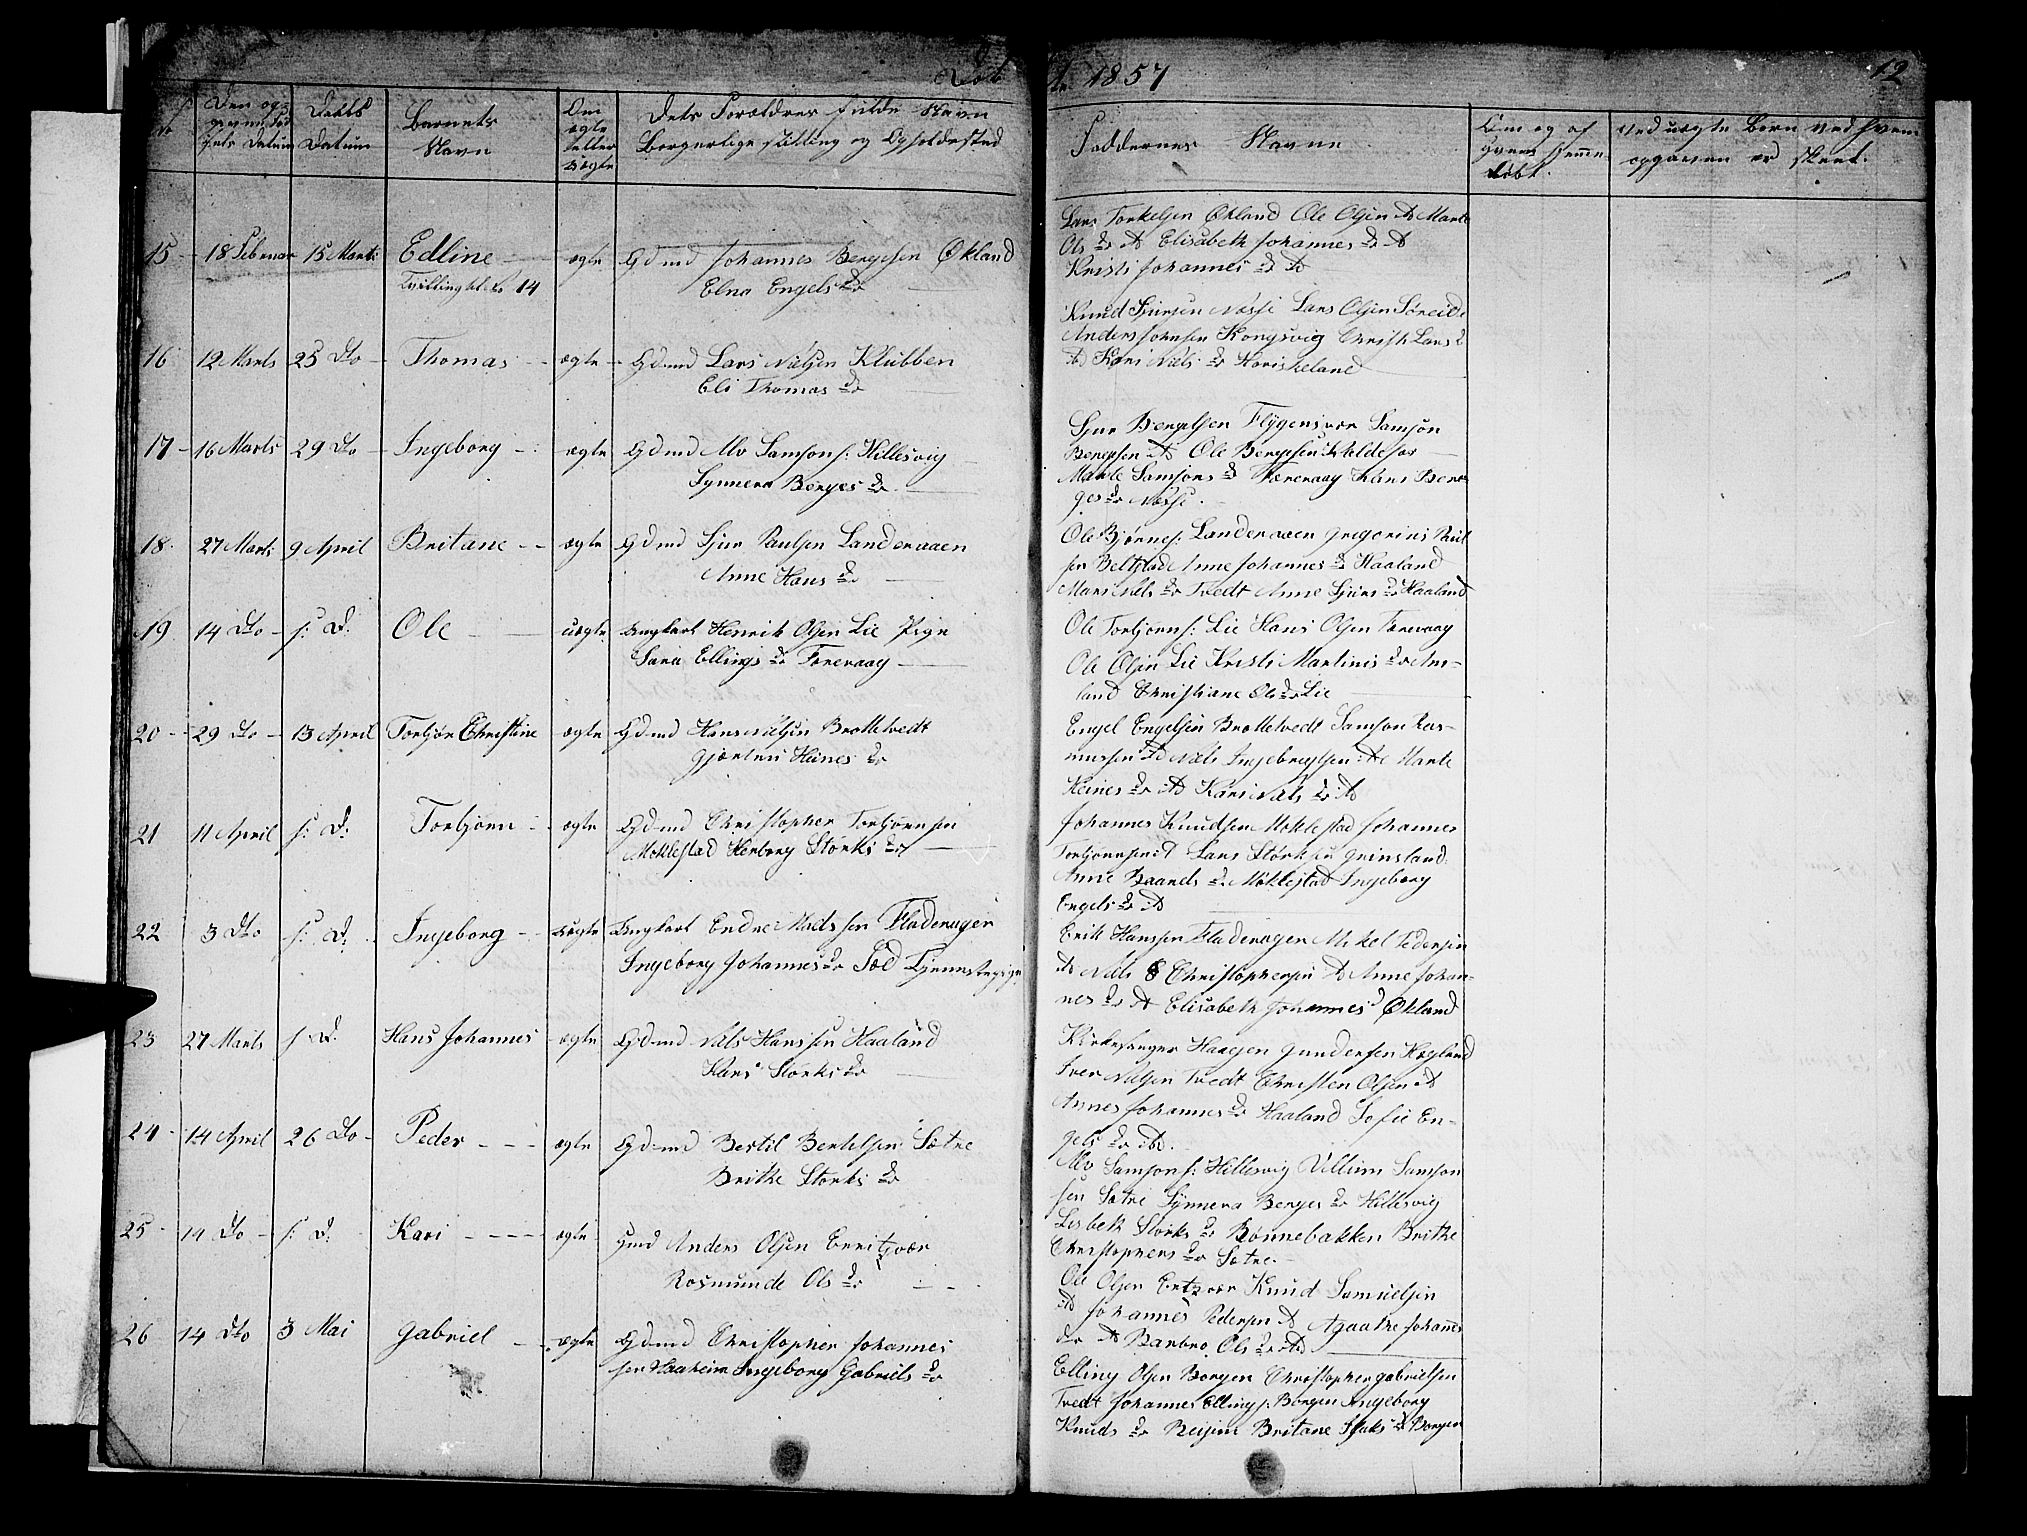 Døbte 1857
12
Den op-
givne Fød
sels Datum
Daabs
Datum
Barnets
Navn
Om
ægte
eller
uægte
Dets Forældres fulde Navn
Borgerlige stilling og Opholdssted
Faddernes Navne
Om og af
hvem hjemme
døbt.
Ved uægte Børn ved hvem
opgaven er skeet.
15 18 Februar 15 Marts Edline ægte Gdmd Johannes Bergesen Økland
Tvilling til No 14 Elna Engels dr
Lars Torkelsen Økland Ole Olsen do Marte
Ols dr do Elisabeth Johannes dr do
Kristi Johannes dr do
16 12 Marts 25 Dto Thomas ægte Gdmd Lars Nilsen Klubben
Eli Thomas dr
Knud Sjursen Nesse Lars Olsen Søreide
Anders Johnsen Kongsvig Christi Lars d
do Kari Nils dr
17 16 Marts 29 Dto Ingeborg ægte Gdmd Alv Samsons: Hillesvig
Synnera Berges dr
Sjur Bergesen Flygensvær Samson
Bergesen do Ole Bergesen
Marte Samsons dr Færevaag Kari Ber-
ges dr Nesse.
18. 27 Marts 9 April Britane ægte Gdmd Sjur Paulsen Landeraaen
Anne Hans dr
Ole Bjørnes: Landeraaen Gregorius Paul
sen Beltestad Anne Johannes dr Haaland
Mari Nils dr Tvedt Anne Sjurs dr Haaland
19 14 Dto s: D: Ole uægte Ungkarl Henrik Olsen Lie Pige
Sara Ellings dr Færevaag
Ole Torbjørns: Lie Hans Olsen Færevaag
Ole Olsen Lie Kristi Martinis dr Aas-
land Christiane Ols dr Lie
20 29 Dto 13 April Torbjør Christine ægte Gdmd Hans Nilsen Brattetvedt
Gjertrui Heines dr
Engel Engelsen Brattetvedt Samson Ras-
mussen do Nils Ingebregtsen do Marte
Heines dr do Kari Nils dr do
21 11 April s: D: Torbjørn ægte Gdmd Christopher Torbjørnsen
Møklestad Herborg Størks dr
Johannes Knudsen Møklestad Johannes
Torbjørnsen do Lars Størksen Grinsland
Anne Baards dr. Møklestad Ingeborg
Engels dr do
22 3 Dto s: D: Ingeborg uægte Ungkarl Endre Madssen Fladerager
Ingeborg Johannes dr Sæd Tjenestepige
Erik Hanssen Fladerager Mikel Pedersen
do Nils Christophersen do Anne Johan-
nes dr do Elisabeth Johannes d Økland
23 27 Marts s D: Hans Johannes ægte Gdmd Nils Hanssen Haaland
Kari Størks dr
Kirkesanger Haagen Gundersen Høgland
Iver Nilsen Tvedt Christen Olsen do
Anne Johannes dr Haaland Sofie En-
gels dr do.
24 14 April 26 Dto Peder ægte Gdmd Bertil Bertelsen Sætre
Brithe Størks dr
Alv Samsons: Hillesvig Villum Samson
sen Sætre Synnera Berges dr Hillesvig
Lisbeth Størks dr Rønnebakken Brithe
Christophers dr Sætre.
25 14 Do s: D: Kari ægte Gmd Anders Olsen Engesvær
Rosmunde Ols dr
Ole Olsen Knud Samuelsen
do Johannes Pedersen do Agaathe Johannes
dr do Barbro Ols dr do
26 14 Dto 3 Mai Gabriel ægte Gdmd Christopher Johannes
sen Haaheim Ingeborg Gabriels dr
Elling Olsen Børgen Christopher Gabrielsen
Tvedt Johannes Ellings: Børgen Ingeborg
Knuds dr Britane dr Børgen